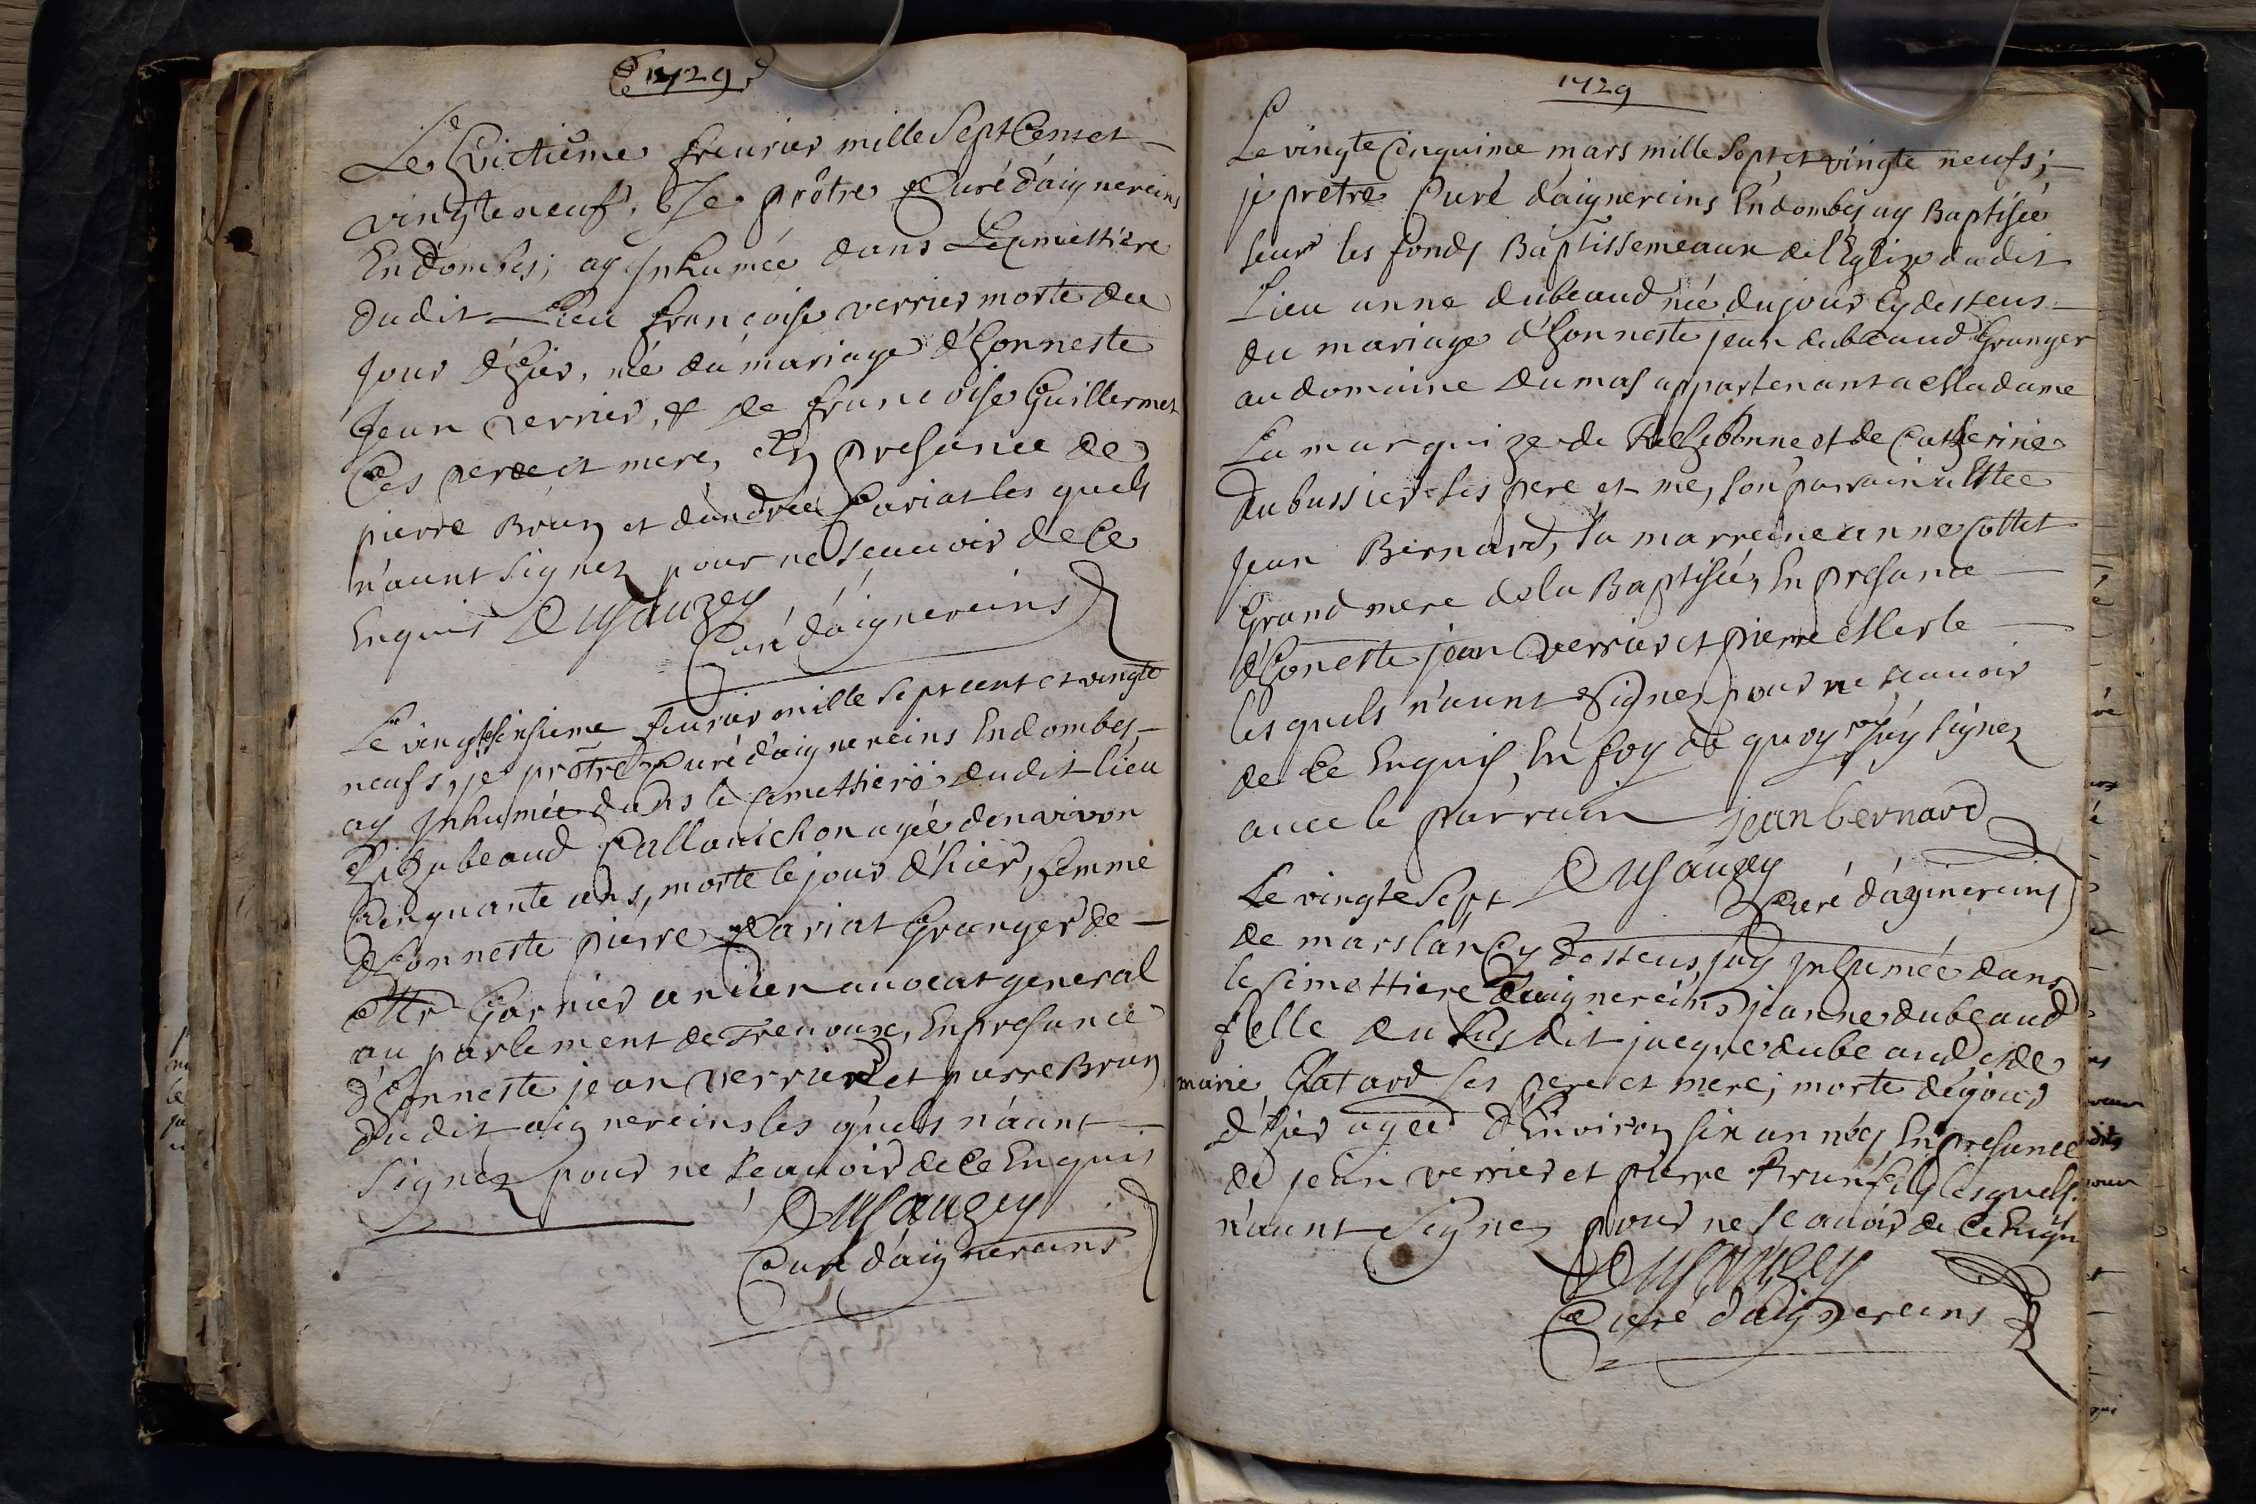 1729
Le huictiême freurier mille Sept Cens et
vingte neuf, Je prôtre Curé d'aignereins
En dombes; ay Inhumée dans Le cimettiere
dudit Lieu françoise verrier morte du
jour d'hier, née du mariage d'honneste
Jean verrier, & de francoise Guillermet
Ces pere et mere, En presance de
pierre Brun et dandrée Cariat les quels
n'aunt Signez pour ne sçauoir de Ce
Enquis Dusauzey
Curé d'aignereins
Le vingt sinsieme feurier mille sept cent et vingte
neufs, je prôtre Curé d'aignereins En dombes,
ay Inhumée dans le cemettiere dudit lieu
Elizabeaud Pallanichon agée denvivron
Cinquante ans, morte le jour d'hier, femme
d'honneste pierre Cariat Granger de
Mr Garnier ancien auocat general
au parlement de Treuoux, En presance
d'honneste jean verrier et pierre Brun
dudit aignereins les quels n'aunt
Signez pour ne sceauoir de Ce Enquis
Dusauzey
Curé d'aignereins
1729
Le vingte Cinquime mars mille Sept, et vingte neufs;
je prêtre Curé d'aignereins En dombes ay Baptisée
seur les fonds Baptissemeaux de l'Eglize dudit
Lieu anne dubeaud née du jour Cy desseus
du mariage d'honneste jean dubeaud Granger
au domaine du mas appartenant a Madame
La marquize de Rhebonne et de Catherine
dubussier ses pere et me, son parrain a Estée
Jean Bernard, la marreine anne Cottet
Grand mere de la Baptisée, En presance
d'honeste jean verrier et pierre Merle
les quels n'aunt Signez pour ne sceauoir
de Ce Enquis, En foy de quoy j'ay signez
auec le parrain jean bernard
Dusauzey
Curé d'aginereins
Le vingte Sept
de mars lan Cy desseus, jay Inhumée dans
le Cimettiere daignereins jeanne dubeaud
felle du susdit jacque dubeaud et de
marie Chatard ses pere et mere; morte dejour
d'hier agée d'Environ six année, En presance
de jean verrier et pierre Brun fils lesquels
n'aunt Signez pour ne sceauoir de Ce Enquis
Dusauzey
Curé d'aignereins